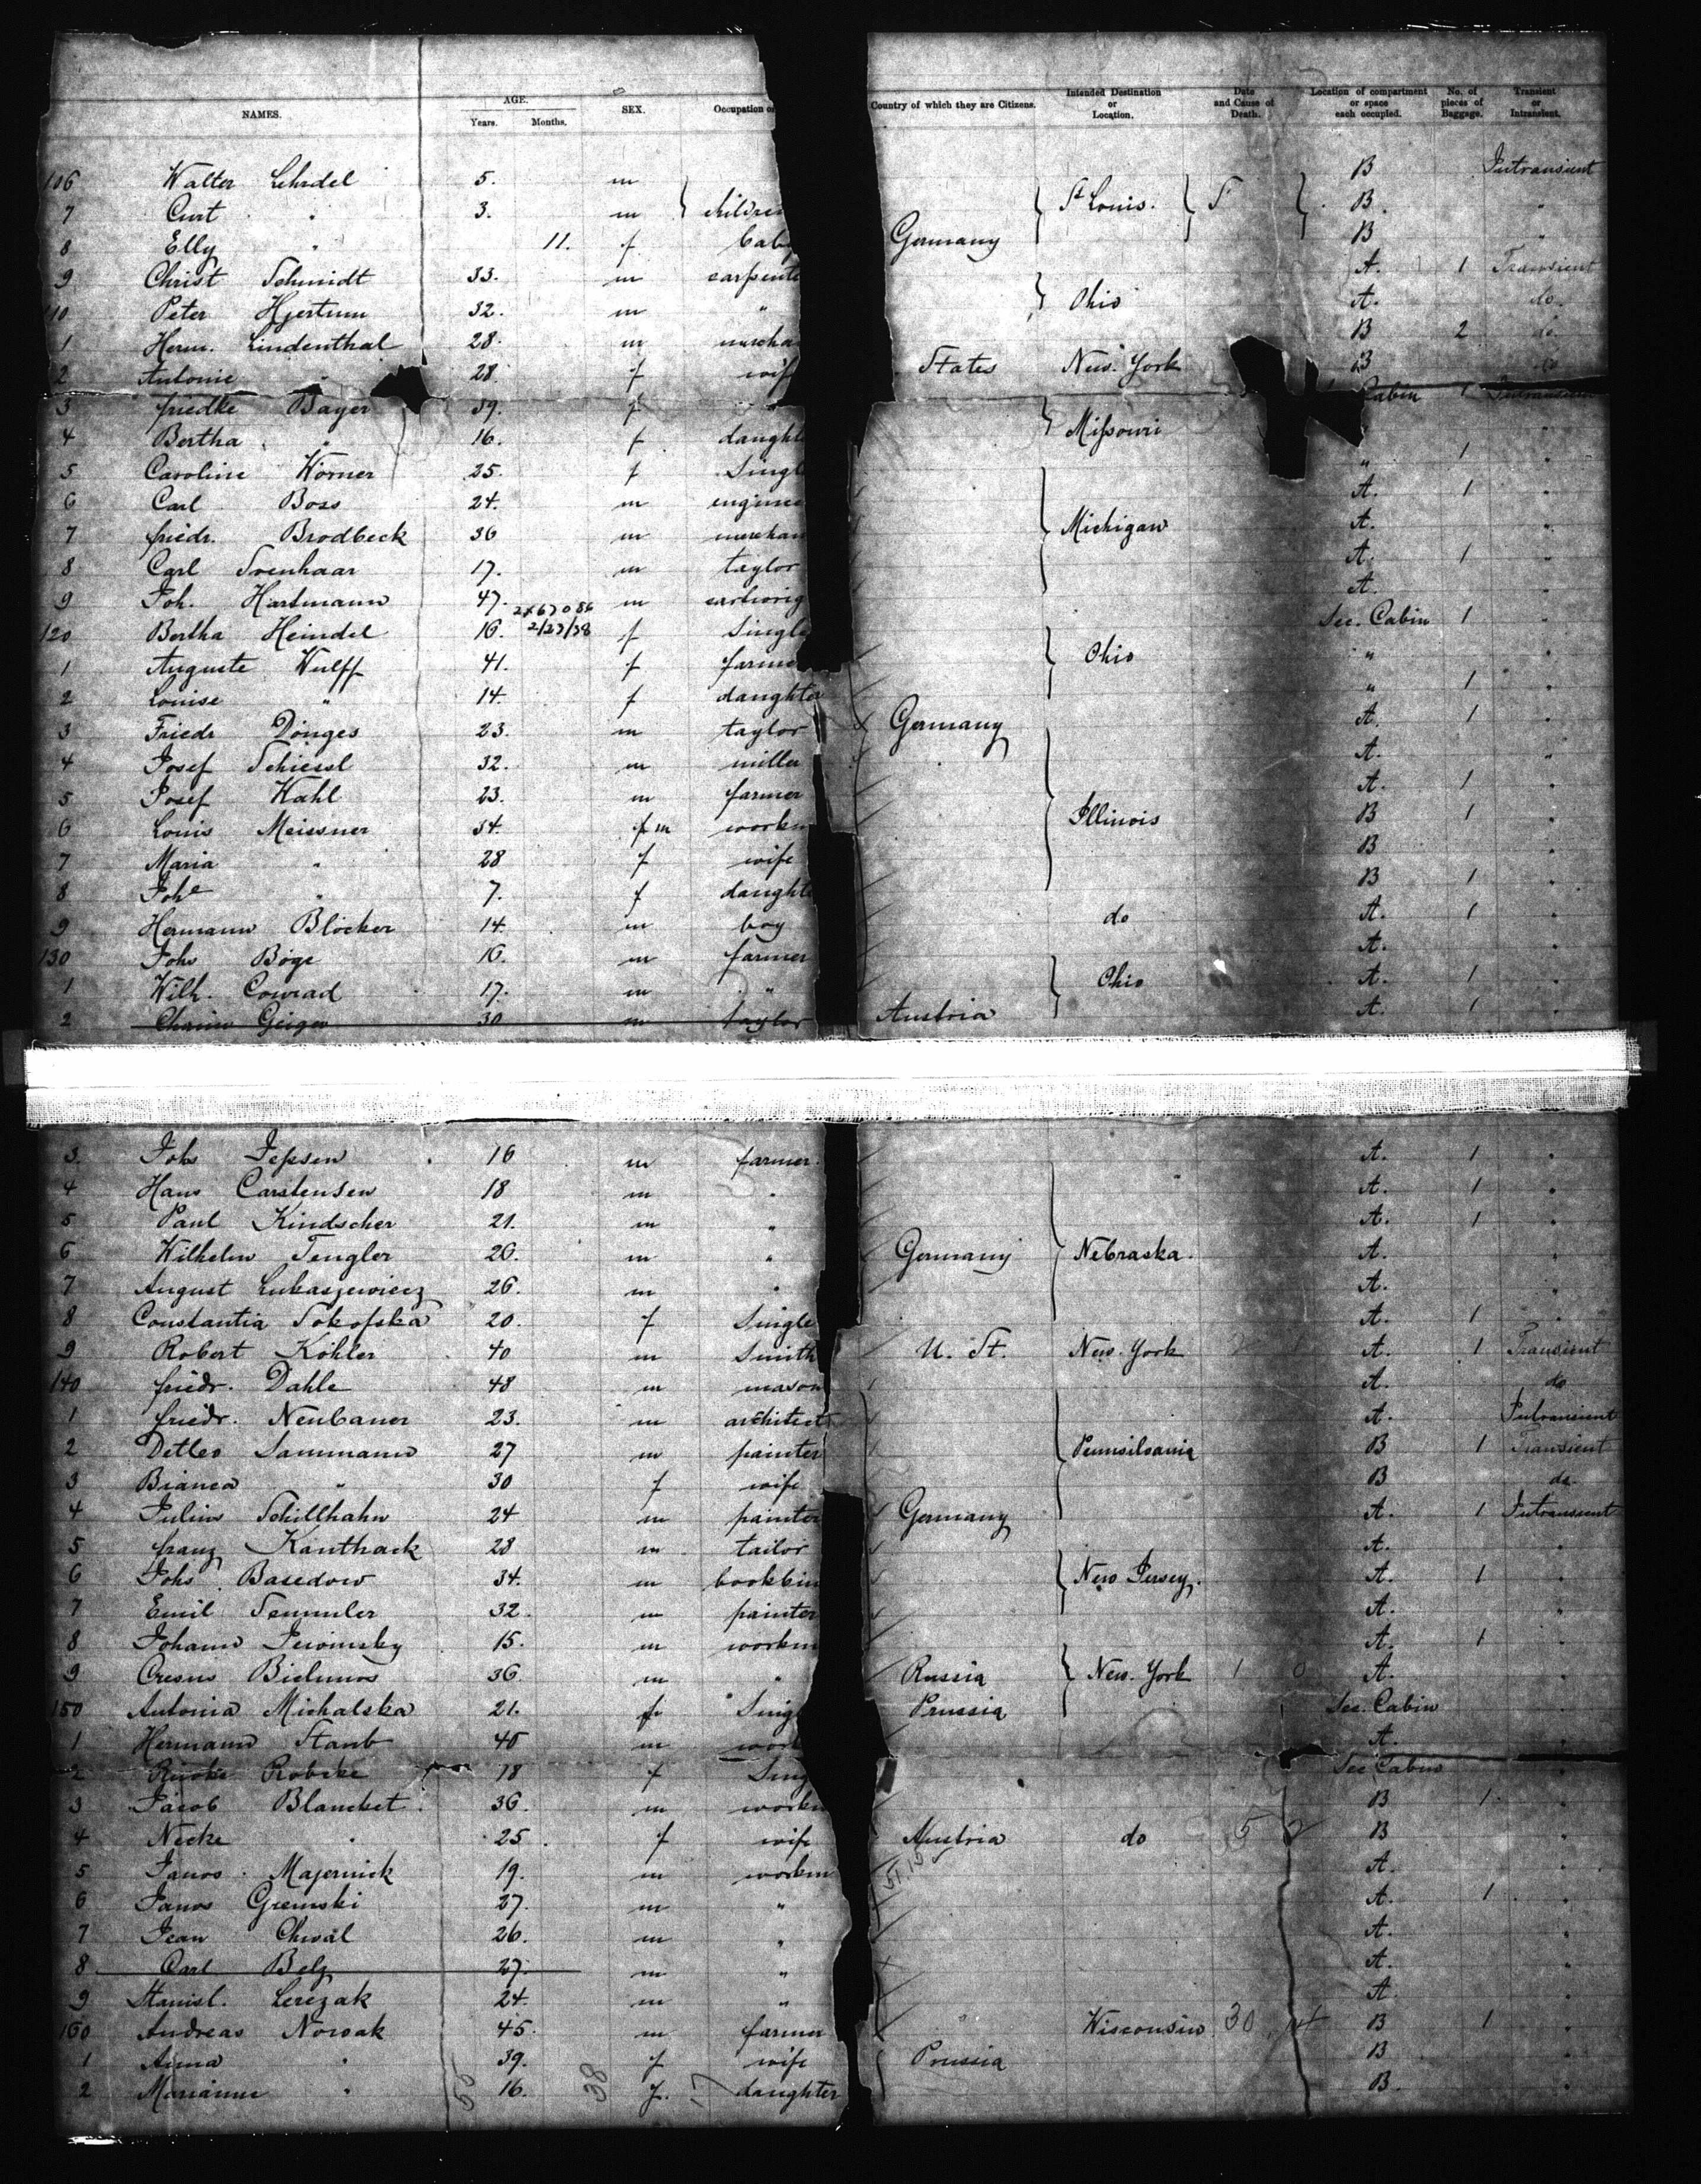 NAMES. AGE. Years. Months. SEX. Occupation or Country of which they are Citizens. Intended Destination or Location. Date and Cause of Death. Location of compartment or space each occupied. No. of pieces of Baggage. Transient or Intransient.
106 Walter 5. m B Intransient
7 Curt " 3. m children St Louis. B "
8 Elly " 11. f baby Germany B "
9 Christ Schmidt 33. m carpente A. 1 Transient
110 Peter Hjertum 32. m " Ohio A. do.
1 Herm. Lindenthal 28. m mercha B 2 do
2 Antonie " 28. f wife States New. York B do
3 friedke Bayer 39. f Cabin 1 Intransient
4 Bertha " 16. f daught Missouri "
5 Caroline Wörner 25. f Singl " 1 "
6 Carl Boss 24. m enginee A. 1 "
7 friedr. Brodbeck 36 m merchan Michigan A. "
8 Carl Svenhaar 17. m taylor A. 1 "
9 Joh. Hartmann 47. m cartwrig A. "
2x67086
120 Bertha Heindel 16. 2/23/38 f Single Sec. Cabin 1 "
1 Auguste Wulff 41. f farme Ohio " "
2 Louise " 14. f daughter " 1 "
3 Friedr Dönges 23. m taylor Germany A. 1 "
4 Josef Schiessl 32. m miller A. "
5 Josef Kahl 23. m farmer A. 1 "
6 Louis Meissner 34. f m workm Illinois B 1 "
7 Maria " 28 f wife B "
8 Johe " 7. f daughte B 1 "
9 Hermann Blöcker 14. m boy do A. 1 "
130 Johs Böge 16. m farmer A. "
1 Wilh. Conrad 17. m " Ohio A. 1 "
2 Chaim Geiger 30 m taylor Austria A. 1 "
3. Johs Jepsen 16 m farmer. A. 1 "
4 Hans Carstensen 18 m " A. 1 "
5 Paul Kindscher 21. m " A. 1 "
6 Wilhelm Tengler 26. m " Germany Nebraska. A. "
7 August Lukaszewicz 26. m " A. "
8 Constantia Sokofska 20. f Single A. 1 "
9 Robert Köhler 40 m Smith U. St. New. York A. 1 Transient
140 friedr. Dahle 48 m mason A. do
1 friedr. Neubauer 23. m architect A. Intransient
2 Detlev Sammann 27 m painter Pennsilvania B 1 Transient
3 Bianca " 30 f wife B do.
4 Julius Schillhahn 24 m painter Germany A. 1 Intransient
5 franz Kanthack 28 m tailor A. "
6 Johs Basedow 34. m bookbin New Jersey. A. 1 "
7 Emil Semmler 32. m painter A. "
8 Johann 15. m workm A. 1 "
9 36. m " Russia New. York 1 0 A.
150 Antonia Michalska 21. f Singl Prussia Sec. Cabin
1 Hermann Staub 45 m work A. "
2 18 f Sing Sec Cabin "
3 Jacob Blancket. 36. m workm B 1. "
4 Necke " 25. f wife Austria do 5 2 B "
5 Janos Majernick 19. m workm A. "
6 Janos 27. m " A. 1 "
7 Jean 26. m " A. "
8 Carl Belz 27. m " A. "
9 Stanisl. Lerezak 24. m " A. "
160 Andreas Nowak 45. m farmer " Wisconsin 30 14 B 1 "
1 Anna " 39. f wife Prussia B "
2 Marianne " 16. f. daughter B. "
55 38 17